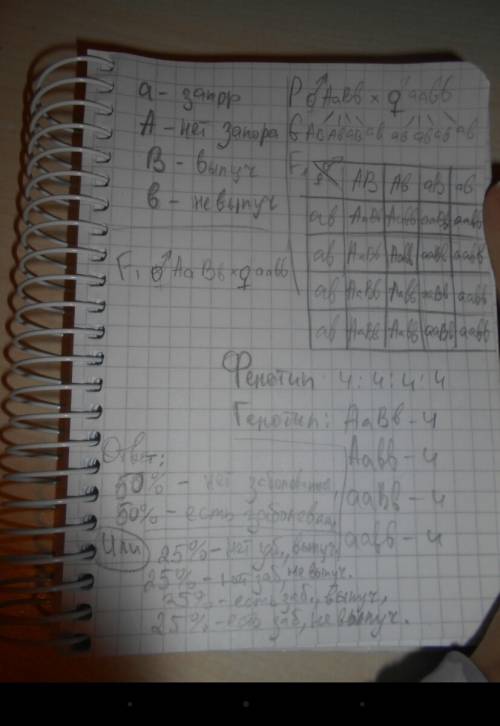 а - запор
А - нет запора
В - выпуч
в - невыпуч
F₁ ♂ АаВв × ♀ аавв
Р ♂ АаВв × ♀ аавв
G АВ Ав аВ ав ав ав ав ав
F₁ ♀ ♂ АВ Ав аВ ав
ав АаВв Аавв ааВв аавв
ав АаВв Аавв ааВв аавв
ав АаВв Аавв ааВв аавв
ав АаВв Аавв ааВв аавв
Фенотип: 4 : 4 : 4 : 4
Генотип: АаВв - 4
Аавв - 4
ааВв - 4
аавв - 4
Ответ:
50% - нет заболевания,
50% - есть заболеван,
Или
25% - нет заб, выпуч,
25% - нет заб, не выпуч.
25% - есть заб, выпуч,
25% - есть заб, не выпуч.